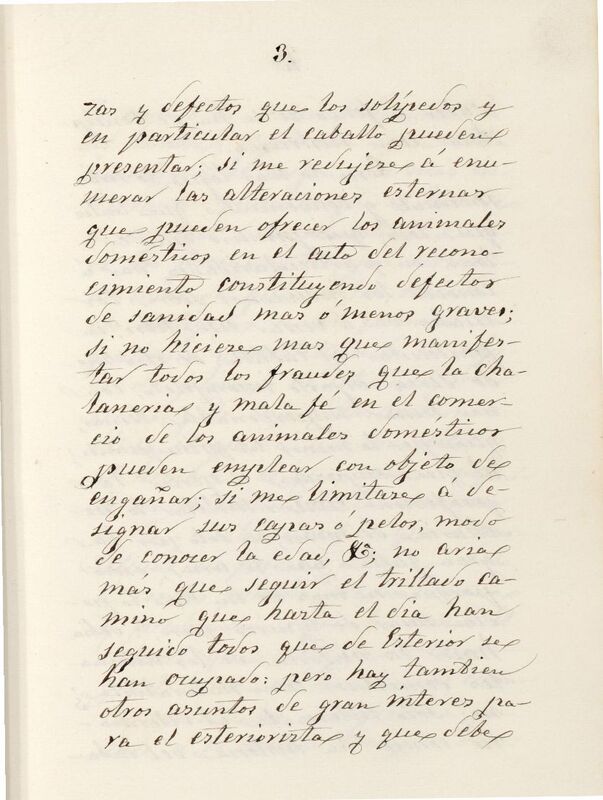 3.
zas y defectos que los solípedos y
en particular el caballo pueden
presentar; si me redujese á enu-
merar las alteraciones esternas
que pueden ofrecer los animales
domésticos en el acto del recono-
cimiento constituyendo defectos
de sanidad mas ó menos graves;
si no hiciese mas que manifes-
tar todos los fraudes que la cha-
laneria y mala fé en el comer-
cio de los animales domésticos
pueden emplear con objeto de
engañar; si me limitase á de-
signar sus capas ó pelos, modo
de conocer la edad, &a; no aria
más que seguir el trillado ca-
mino que hasta el dia han
seguido todos que de Esterior se
han ocupado: pero hay tambien
otros asuntos de gran interes pa-
ra el esteriorista y que debe